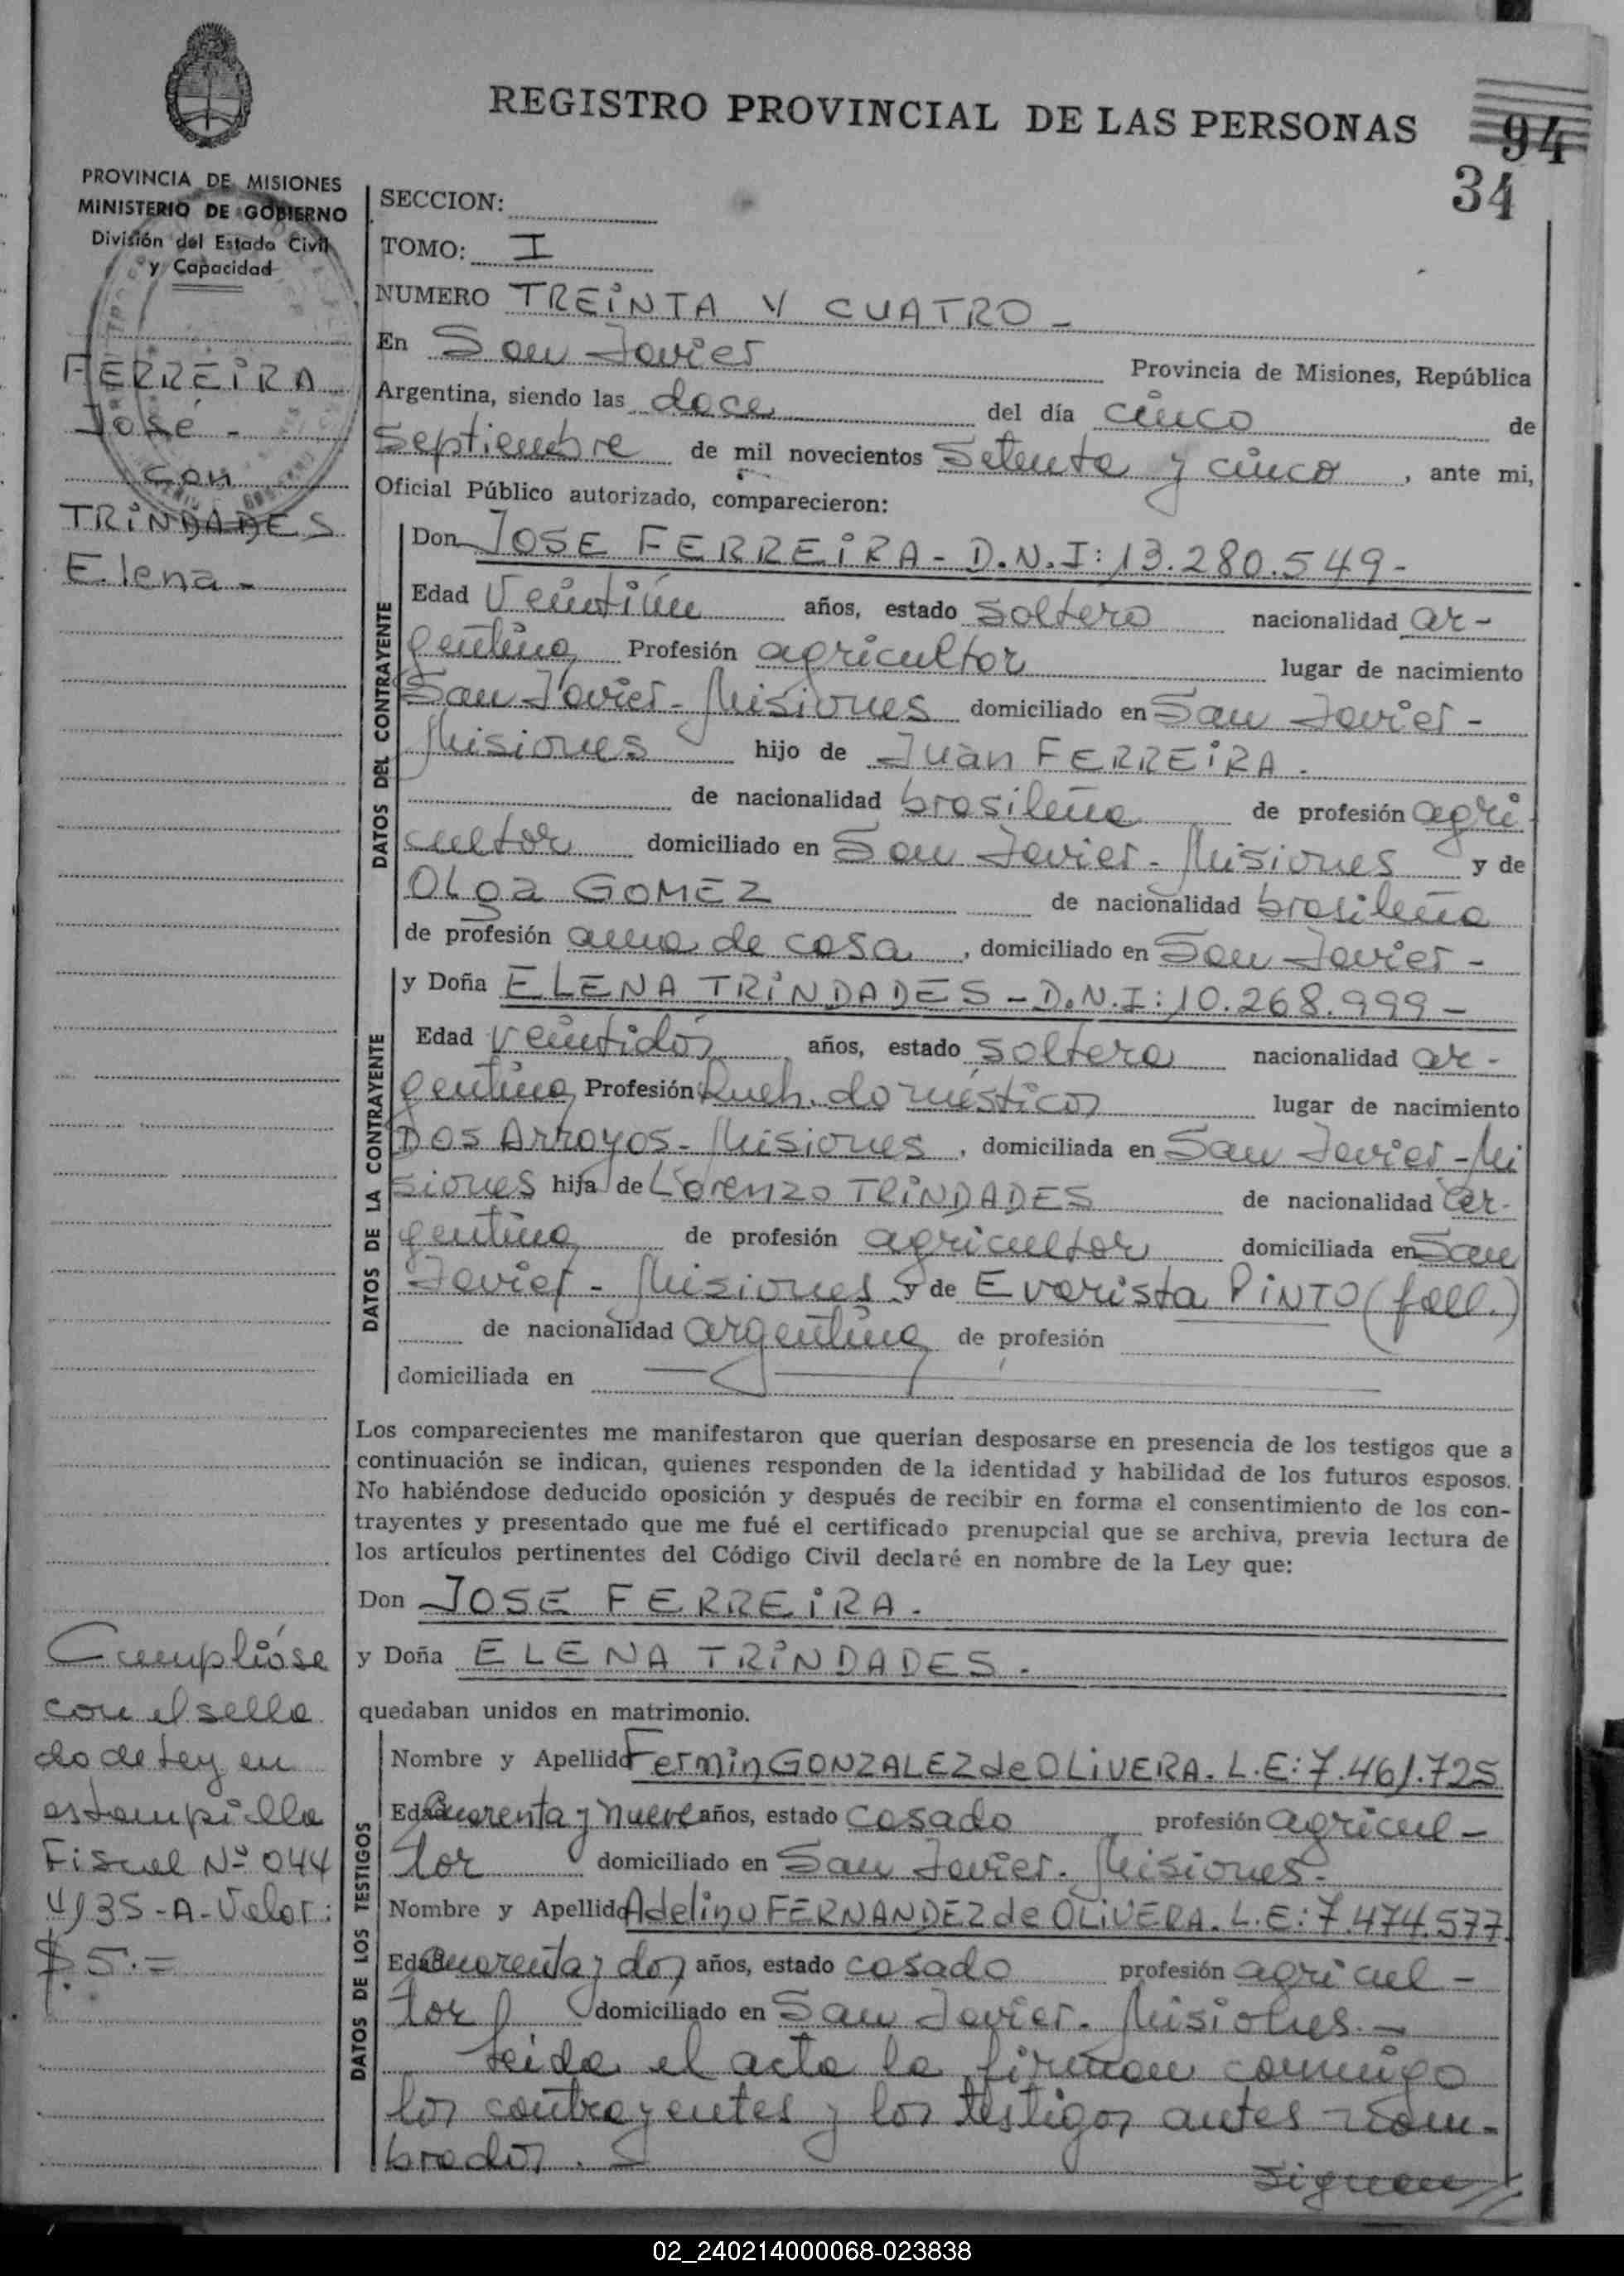 REGISTRO PROVINCIAL DE LAS PERSONAS
94
34
PROVINCIA DE MISIONES
MINISTERIO DE GOBIERNO
División del Estado Civil
y Capacidad
FERREIRA
José -
con
TRINDADES
Elena -
SECCION:
TOMO: I
NUMERO TREINTA Y CUATRO -
En San Javier Provincia de Misiones, República
Argentina, siendo las doce del día cinco de
Septiembre de mil novecientos Setenta y cinco, ante mi,
Oficial Público autorizado, comparecieron:
DATOS DEL CONTRAYENTE
Don JOSE FERREIRA - D.N.I: 13.280.549 -
Edad Veintiún años, estado soltero nacionalidad ar-
gentina Profesión agricultor lugar de nacimiento
San Javier - Misiones domiciliado en San Javier -
Misiones hijo de Juan FERREIRA.
de nacionalidad brasileña de profesión agri
cultor domiciliado en San Javier - Misiones y de
OLga GOMEZ de nacionalidad brasileña
de profesión ama de casa, domiciliado en San Javier -
DATOS DE LA CONTRAYENTE
y Doña ELENA TRINDADES - D.N.I: 10.268.999 -
Edad veintidós años, estado soltera nacionalidad ar-
gentina Profesión Queh. domésticos lugar de nacimiento
Dos Arroyos - Misiones, domiciliada en San Javier - Mi
siones hija de Lorenzo TRINDADES de nacionalidad ar-
gentina de profesión agricultor domiciliada en San
Javier - Misiones y de Evarista PINTO (fall.)
de nacionalidad argentina de profesión
domiciliada en
Los comparecientes me manifestaron que querían desposarse en presencia de los testigos que a
continuación se indican, quienes responden de la identidad y habilidad de los futuros esposos.
No habiéndose deducido oposición y después de recibir en forma el consentimiento de los con-
trayentes y presentado que me fué el certificado prenupcial que se archiva, previa lectura de
los artículos pertinentes del Código Civil declaré en nombre de la Ley que:
Don JOSE FERREIRA.
y Doña ELENA TRINDADES.
quedaban unidos en matrimonio.
Cumplióse
con el sella
do de Ley en
estampilla
Fiscal Nº 044
4135-A-Valor:
$5.=
DATOS DE LOS TESTIGOS
Nombre y Apellido Fermin GONZALEZ de OLIVERA. L.E: 7.461.725
Edad Cuarenta y nueve años, estado casado profesión agricul-
tor domiciliado en San Javier. Misiones.
Nombre y Apellido Adelino FERNANDEZ de OLIVERA. L.E: 7.474.577
Edad Cuarenta y dos años, estado casado profesión agricul-
tor domiciliado en San Javier. Misiones. -
Leída el acta la firman conmigo
los contrayentes y los testigos antes nom-
brados. -
Siguen//
02_240214000068-023838